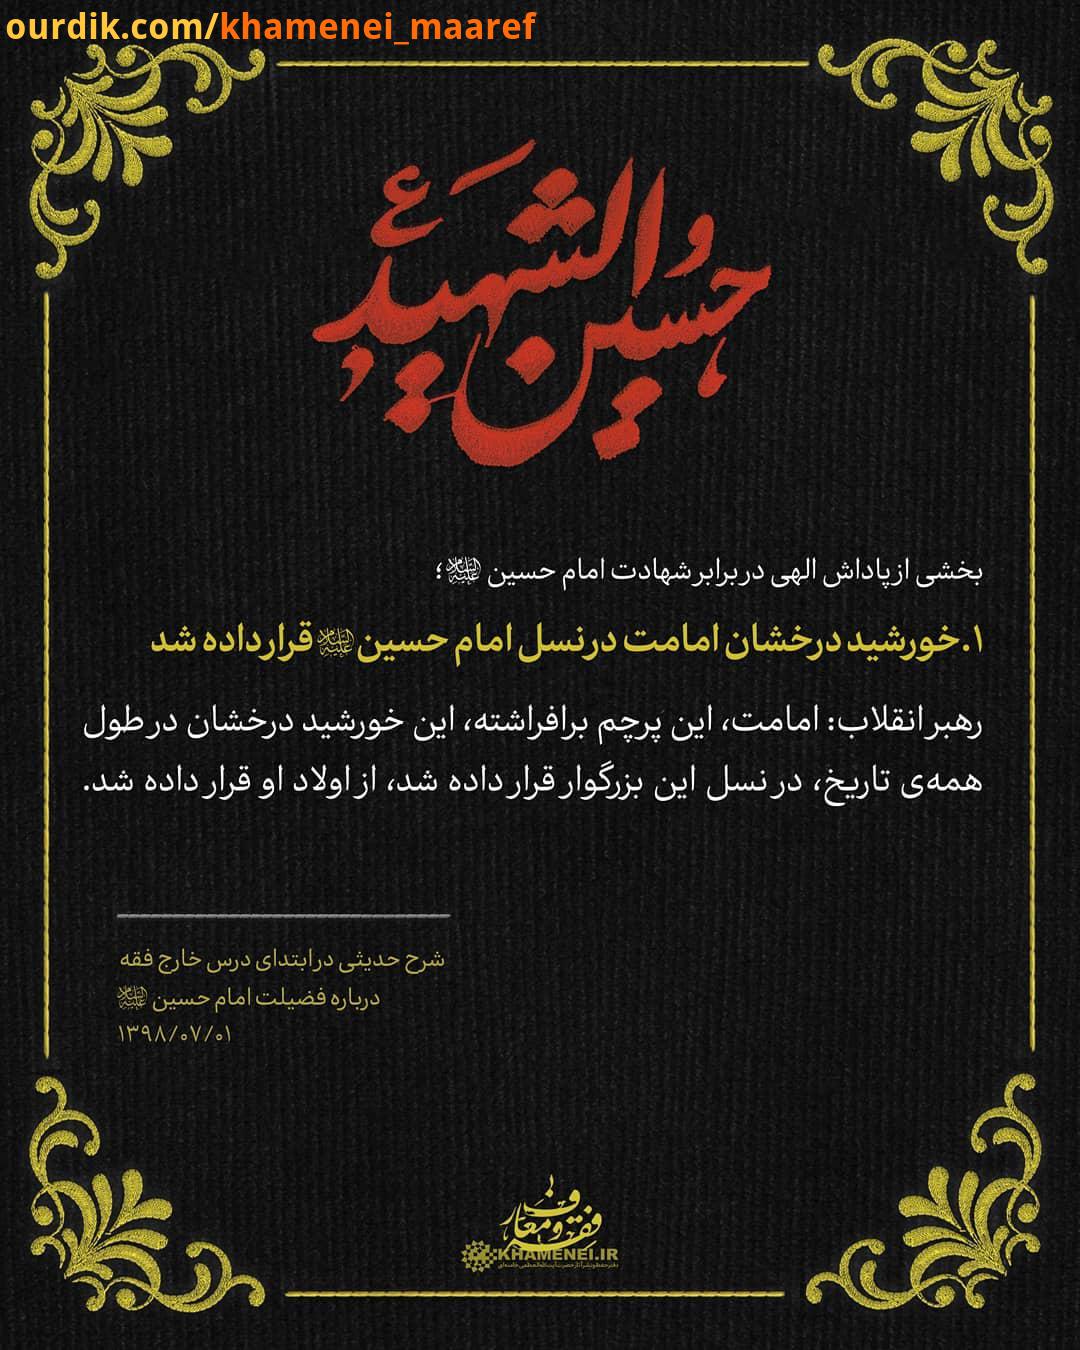 ourdik.com/khamenei_maaref
و حسین الشهید ع
بخشی از پاداش الهی در برابر شهادت امام حسین علیه‌السلام؛
۱. خورشید درخشان امامت در نسل امام حسین علیه‌السلام قرار داده شد
رهبر انقلاب: امامت، این پرچم برافراشته، این خورشید درخشان در طول
همه‌ی تاریخ، در نسل این بزرگوار قرار داده شد، از اولاد او قرار داده شد.
شرح حدیثی در ابتدای درس خارج فقه
درباره فضیلت امام حسین علیه‌السلام
۱۳۹۸/۰۷/۰۱
فقه و معارف
KHAMENEI.IR
دفتر حفظ و نشر آثار حضرت آیت‌الله‌العظمی خامنه‌ای